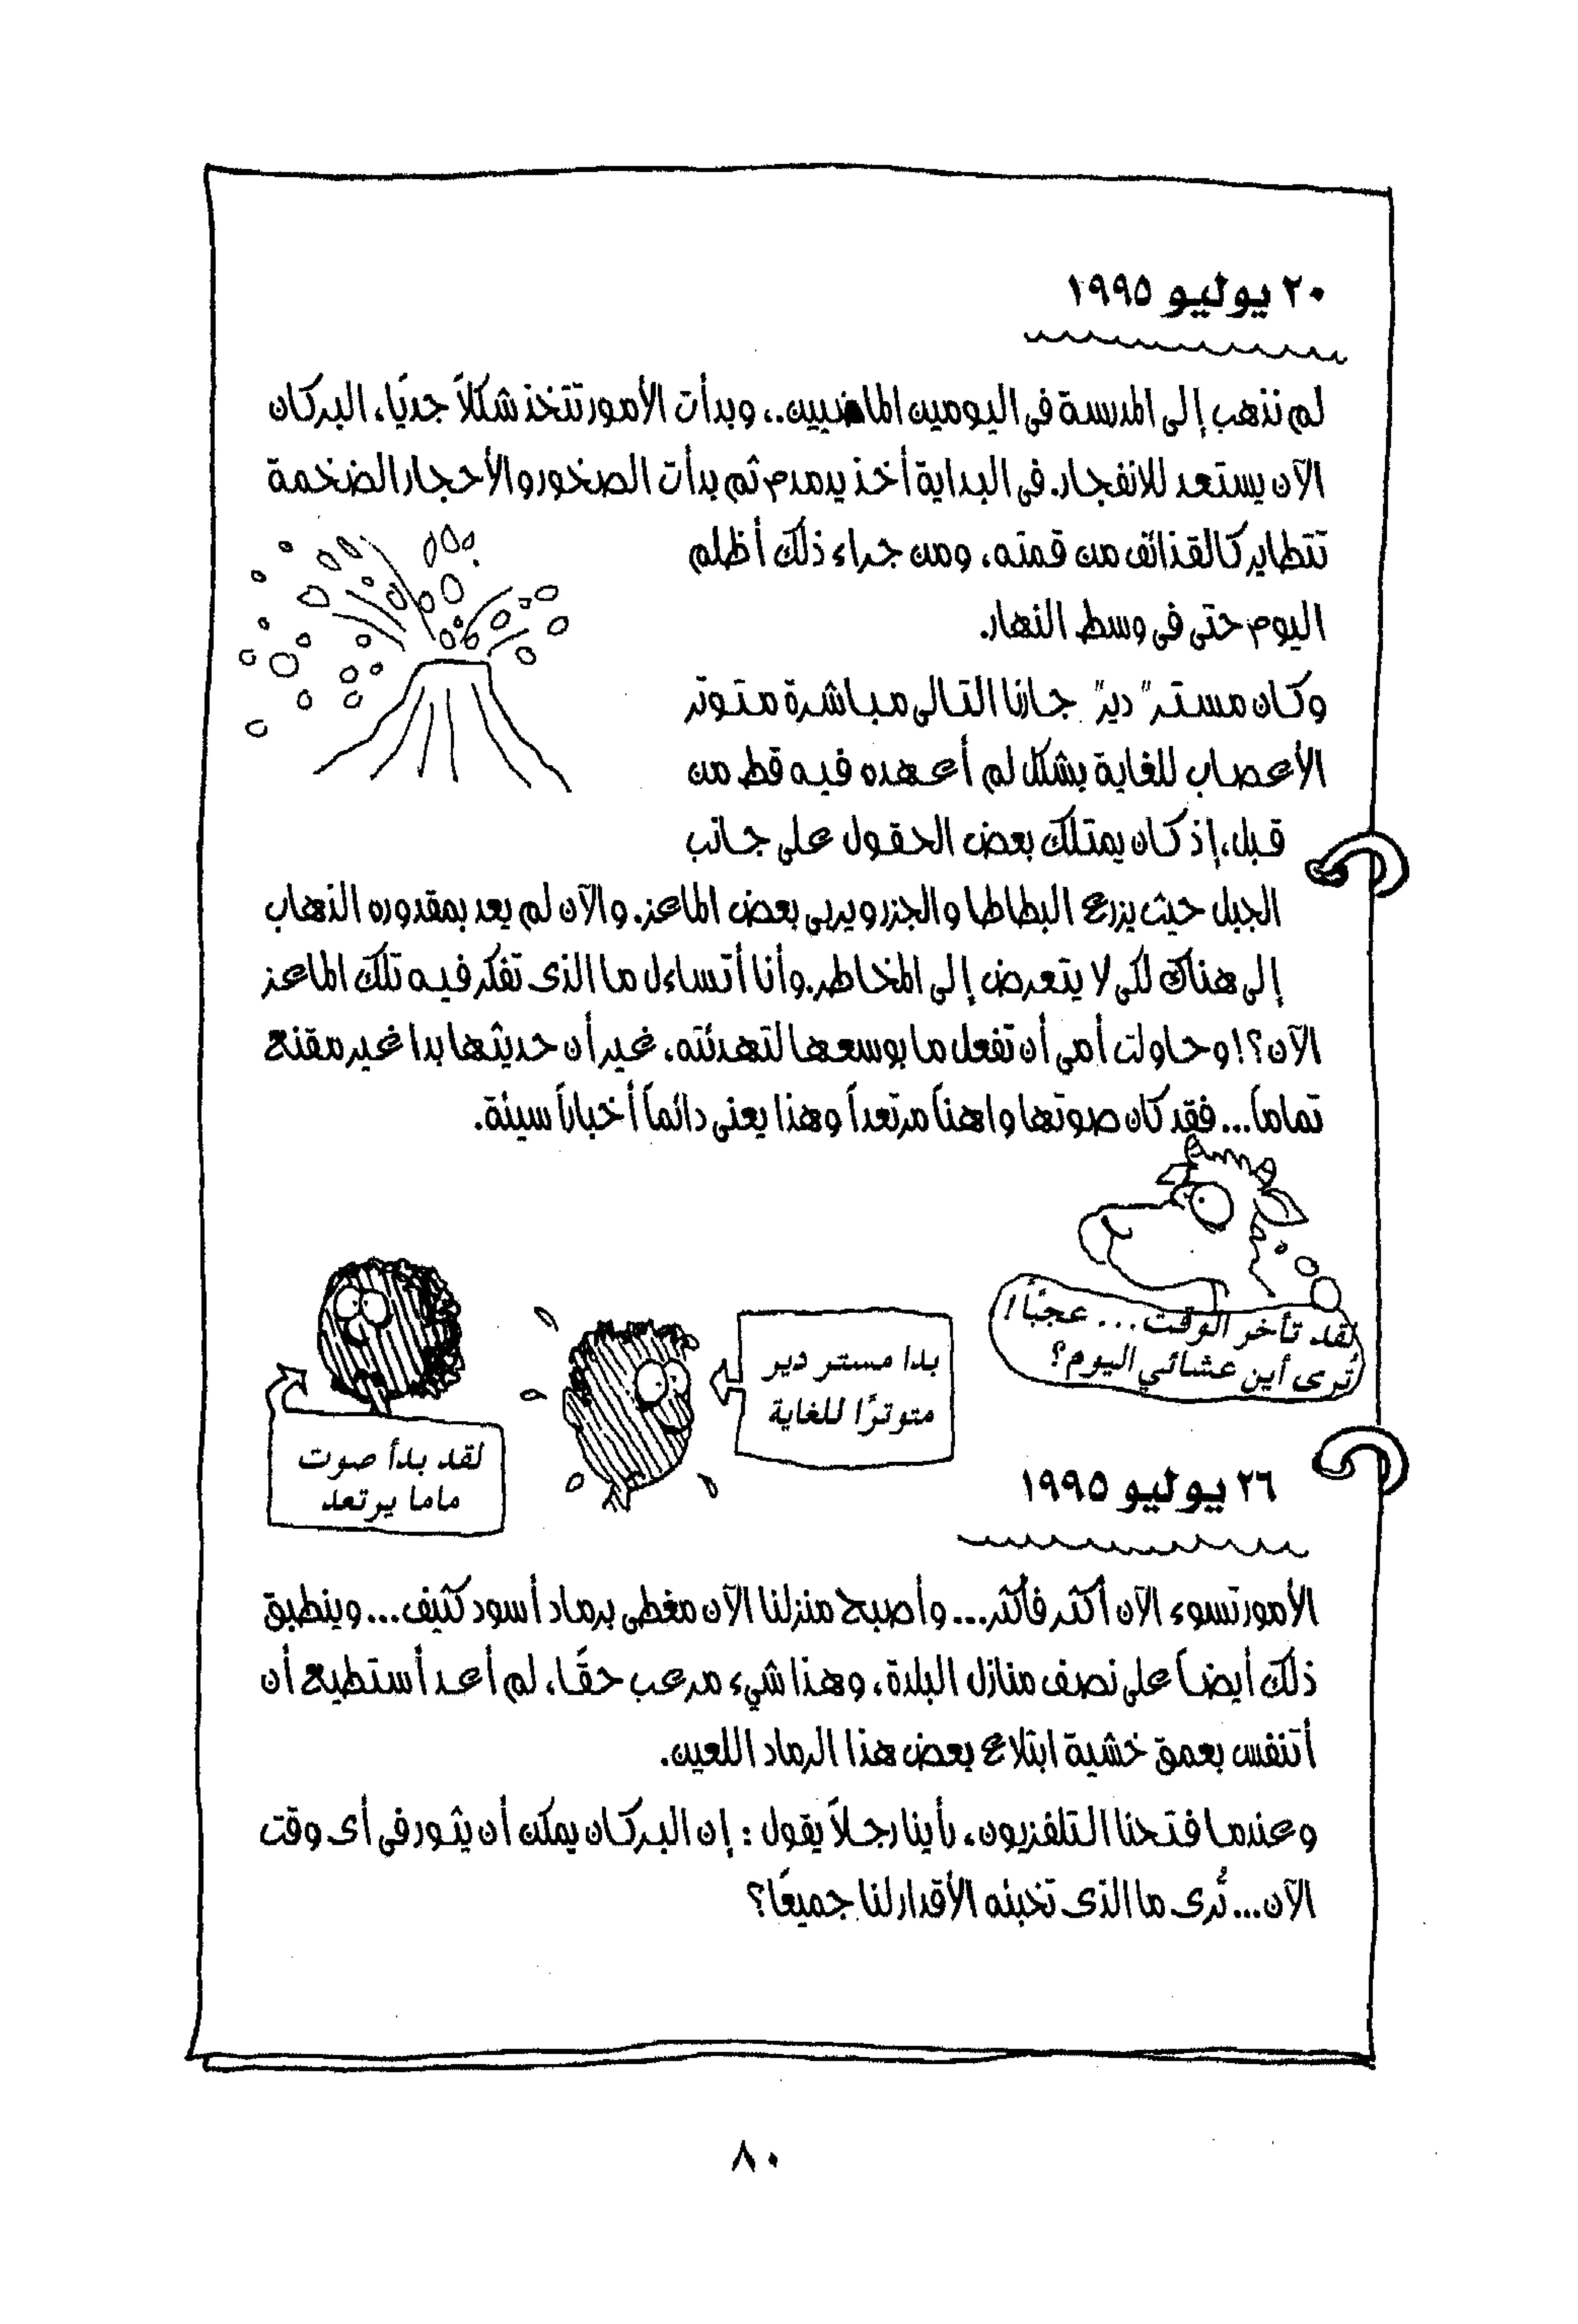 ٢٠ يوليو ١٩٩٥
لم نذهب إلى المدرسة فى اليومين الماضيين.. وبدأت الأمور تتخذ شكلاً جديًا، البركان
الآن يستعد للانفجار. فى البداية أخذ يدمدم ثم بدأت الصخور والأحجار الضخمة
تتطاير كالقذائف من قمته، ومن جراء ذلك أظلم
اليوم حتى فى وسط النهار.
وكان مستر "دير" جارنا التالى مباشرة متوتر
الأعصاب للغاية بشكل لم أعهده فيه قط من
قبل، إذ كان يمتلك بعض الحقول على جانب
الجبل حيث يزرع البطاطا والجزر ويربى بعض الماعز. والآن لم يعد بمقدوره الذهاب
إلى هناك لكى لا يتعرض إلى المخاطر. وأنا أتساءل ما الذى تفكر فيه تلك الماعز
الآن؟! وحاولت أمى أن تفعل ما بوسعها لتهدئته، غير أن حديثها بدا غير مقنع
تماماً... فقد كان صوتها واهناً مرتعداً وهذا يعنى دائماً أخباراً سيئة.
لقد تأخر الوقت... عجبًا!
تُرى أين عشائي اليوم؟
بدا مستر دير
متوترًا للغاية
لقد بدأ صوت
ماما يرتعد
٢٦ يوليو ١٩٩٥
الأمور تسوء الآن أكثر فأكثر... وأصبح منزلنا الآن مغطى برماد أسود كثيف... وينطبق
ذلك أيضاً على نصف منازل البلدة، وهذا شيء مرعب حقًا، لم أعد أستطيع أن
أتنفس بعمق خشية ابتلاع بعض هذا الرماد اللعين.
وعندما فتحنا التلفزيون، رأينا رجلاً يقول : إن البركان يمكن أن يثور فى أى وقت
الآن... تُرى ما الذى تخبئه الأقدار لنا جميعًا؟
٨٠